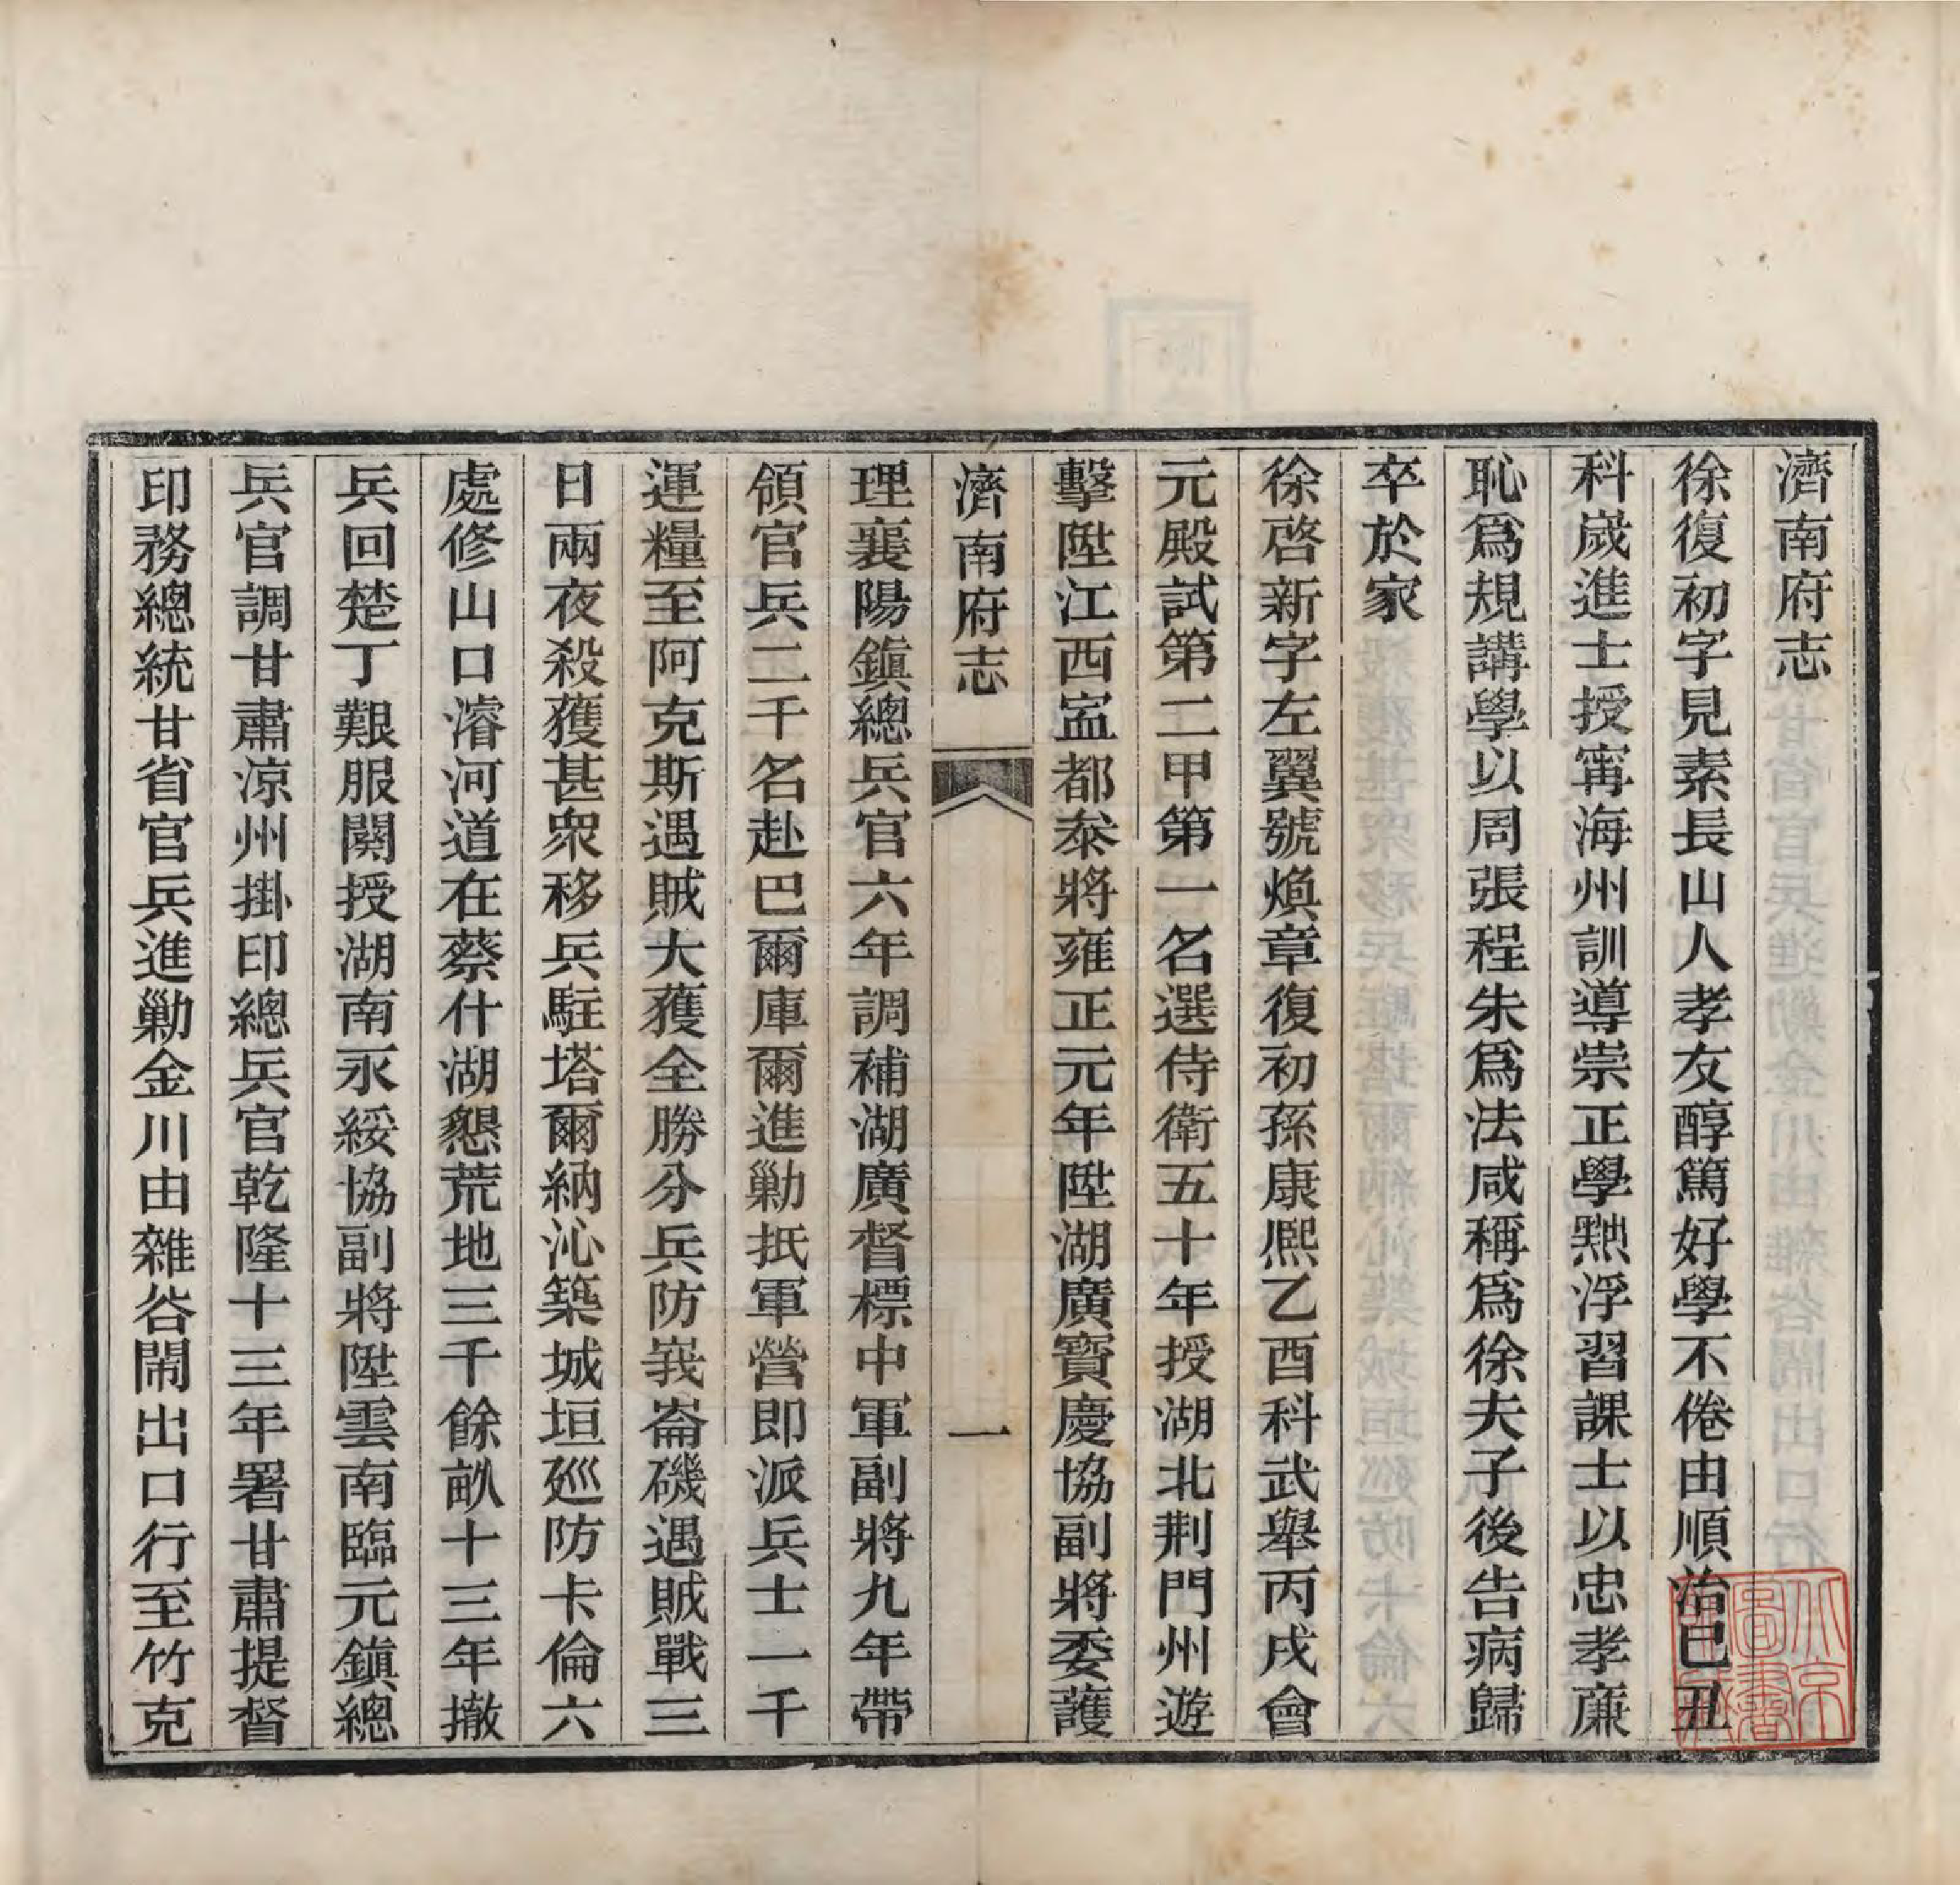 濟南府志
徐復初字見素長山人孝友醇篤好學不倦由順治己丑
科嵗進士授寗海州訓導崇正學黜浮習課士以忠孝廉
恥爲規講學以周張程朱爲法咸稱爲徐夫子後告病歸
卒於家
徐啓新字左翼號煥章復初孫康熈乙酉科武舉丙戌會
元殿試第二甲第一名選侍衛五十年授湖北荆門州遊
擊陞江西寍都叅將雍正元年陞湖廣寶慶協副將委護
濟南府志
一
理襄陽鎭總兵官六年調補湖廣督標中軍副將九年帶
領官兵二千名赴巴爾庫爾進勦抵軍營即派兵士一千
運糧至阿克斯遇賊大獲全勝分兵防峩崙磯遇賊戰三
日兩夜殺獲甚衆移兵駐塔爾納沁築城垣廵防卡倫六
處修山口濬河道在蔡什湖懇荒地三千餘畝十三年撤
兵回楚丁艱服闋授湖南永綏協副將陞雲南臨元鎭總
兵官調甘肅凉州掛印總兵官乾隆十三年署甘肅提督
印務總統甘省官兵進勦金川由雜谷閙出口行至竹克